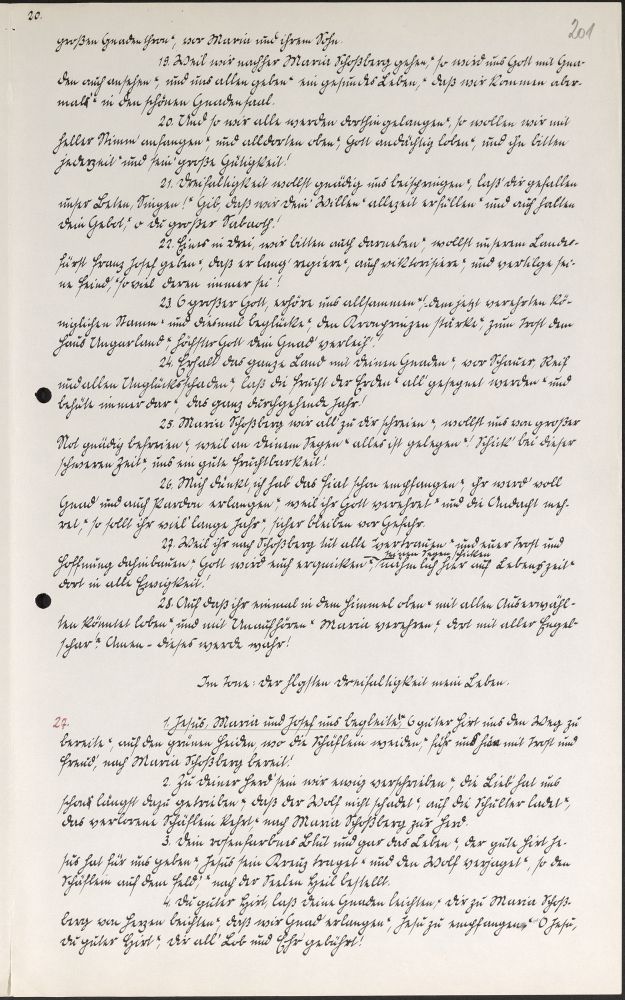 20.
201
großen Gnadenthron", vor Maria und ihrem Sohn.
19. Weil wir nachher Maria Schoßberg gehen," so wird uns Gott mit Gna-
den auch ansehen", und uns allen geben" ein gesundes Leben," daß wir kommen aber-
mals" in den schönen Gnadensaal.
20. Und so wir alle werden dorthin gelangen", so wollen wir mit
heller Stimm' anfangen" und alldorten oben", Gott andächtig loben", und ihn bitten
jederzeit" und sein' große Gütigkeit!
21. Dreifaltigkeit wollst gnädig uns beispringen", laß' dir gefallen
unser Beten, Singen!" Gib, daß wir Dein' Willen" allezeit erfüllen" und auch halten
dein Gebot," o du großer Sabaoth!
22. Eines in Drei, wir bitten auch darneben", wollst unserem Landes-
fürst Franz Josef geben", daß er lang' regiere", auch viktorisiere", und vertilge sei-
ne Feind," so viel deren immer sei!
23. O großer Gott, erhöre uns allsammen"! dem jetzt verehrten Kö-
niglichen Stamm" und diesmal beglücke", den Kronprinzen stärke", zum Trost dem
Haus Ungarland", höchster Gott dein Gnad' verleih!"
24. Erhalt' das ganze Land mit deinen Gnaden", vor Schauer, Reif
und allen Unglücksschaden", laß die Frücht der Erden" all gesegnet werden" und
behüte immerdar", das ganz durchgehende Jahr!
25. Maria Schoßberg wir all' zu dir schreien", wollst uns von großer
Not gnädig befreien", weil an deinem Segen" alles ist gelegen"! Schick' bei dieser
schweren Zeit", uns ein gute Fruchtbarkeit!
26. Mich dünkt, ich hab' das Fiat schon empfangen", ihr werd' voll
Gnad' und auch Pardon erlangen", weil ihr Gott verehret" und die Andacht meh-
ret," so sollt ihr viel' lange Jahr", sicher bleiben vor Gefahr.
27. Weil ihr nach Schoßberg tut alle vertrauen" und euer Trost und
Hoffnung dahinbauen", Gott wird euch erquicken", seinen Segen schicken
nämlich hier auf Lebenszeit"
dort in alle Ewigkeit!
28. Auf daß ihr einmal in dem Himmel oben" mit allen Auserwähl-
ten könntet loben", und mit Unaufhören" Maria verehren", dort mit aller Engel-
schar"! Amen - dieses werde wahr!
Im Tone: Der Hlgsten Dreifaltigkeit mein Leben.
27.
1. Jesus, Maria und Josef uns begleite", O guter Hirt uns den Weg zu
bereite", auf den grünen Heiden, wo die Schäflein weiden," führ uns hin mit Trost und
Freud', nach Maria Schoßberg bereit!
2. Zu deiner Herd' sein wir ewig verschrieben", die Lieb' hat uns
schon längst dazu getrieben", daß der Wolf nicht schadet", auf die Schulter ladet",
das verlorene Schäflein kehrt" nach Maria Schoßberg zur Herd.
3. Dein rosenfarbnes Blut und gar das Leben", der gute Hirt Je-
sus hat für uns geben", Jesus sein Kreuz traget" und den Wolf verjaget", so den
Schäflein auf dem Feld," nach der Seelen Heil bestellt.
4. Du guter Hirt, laß deine Gnaden leuchten," dir zu Maria Schoß-
berg von Herzen beichten", daß wir Gnad' erlangen", Jesu zu empfangen," O Jesu,
du guter Hirt", dir all' Lob und Ehr' gebührt!